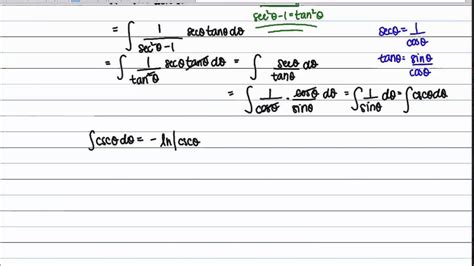 = ∫ 1/(sec²θ-1) secθ tanθ dθ
sec²θ-1 = tan²θ
secθ = 1/cosθ
= ∫ 1/tan²θ secθ tanθ dθ = ∫ secθ/tanθ dθ
tanθ = sinθ/cosθ
= ∫ 1/cosθ · cosθ/sinθ dθ = ∫ 1/sinθ dθ = ∫ cscθ dθ
∫ cscθ dθ = -ln|cscθ